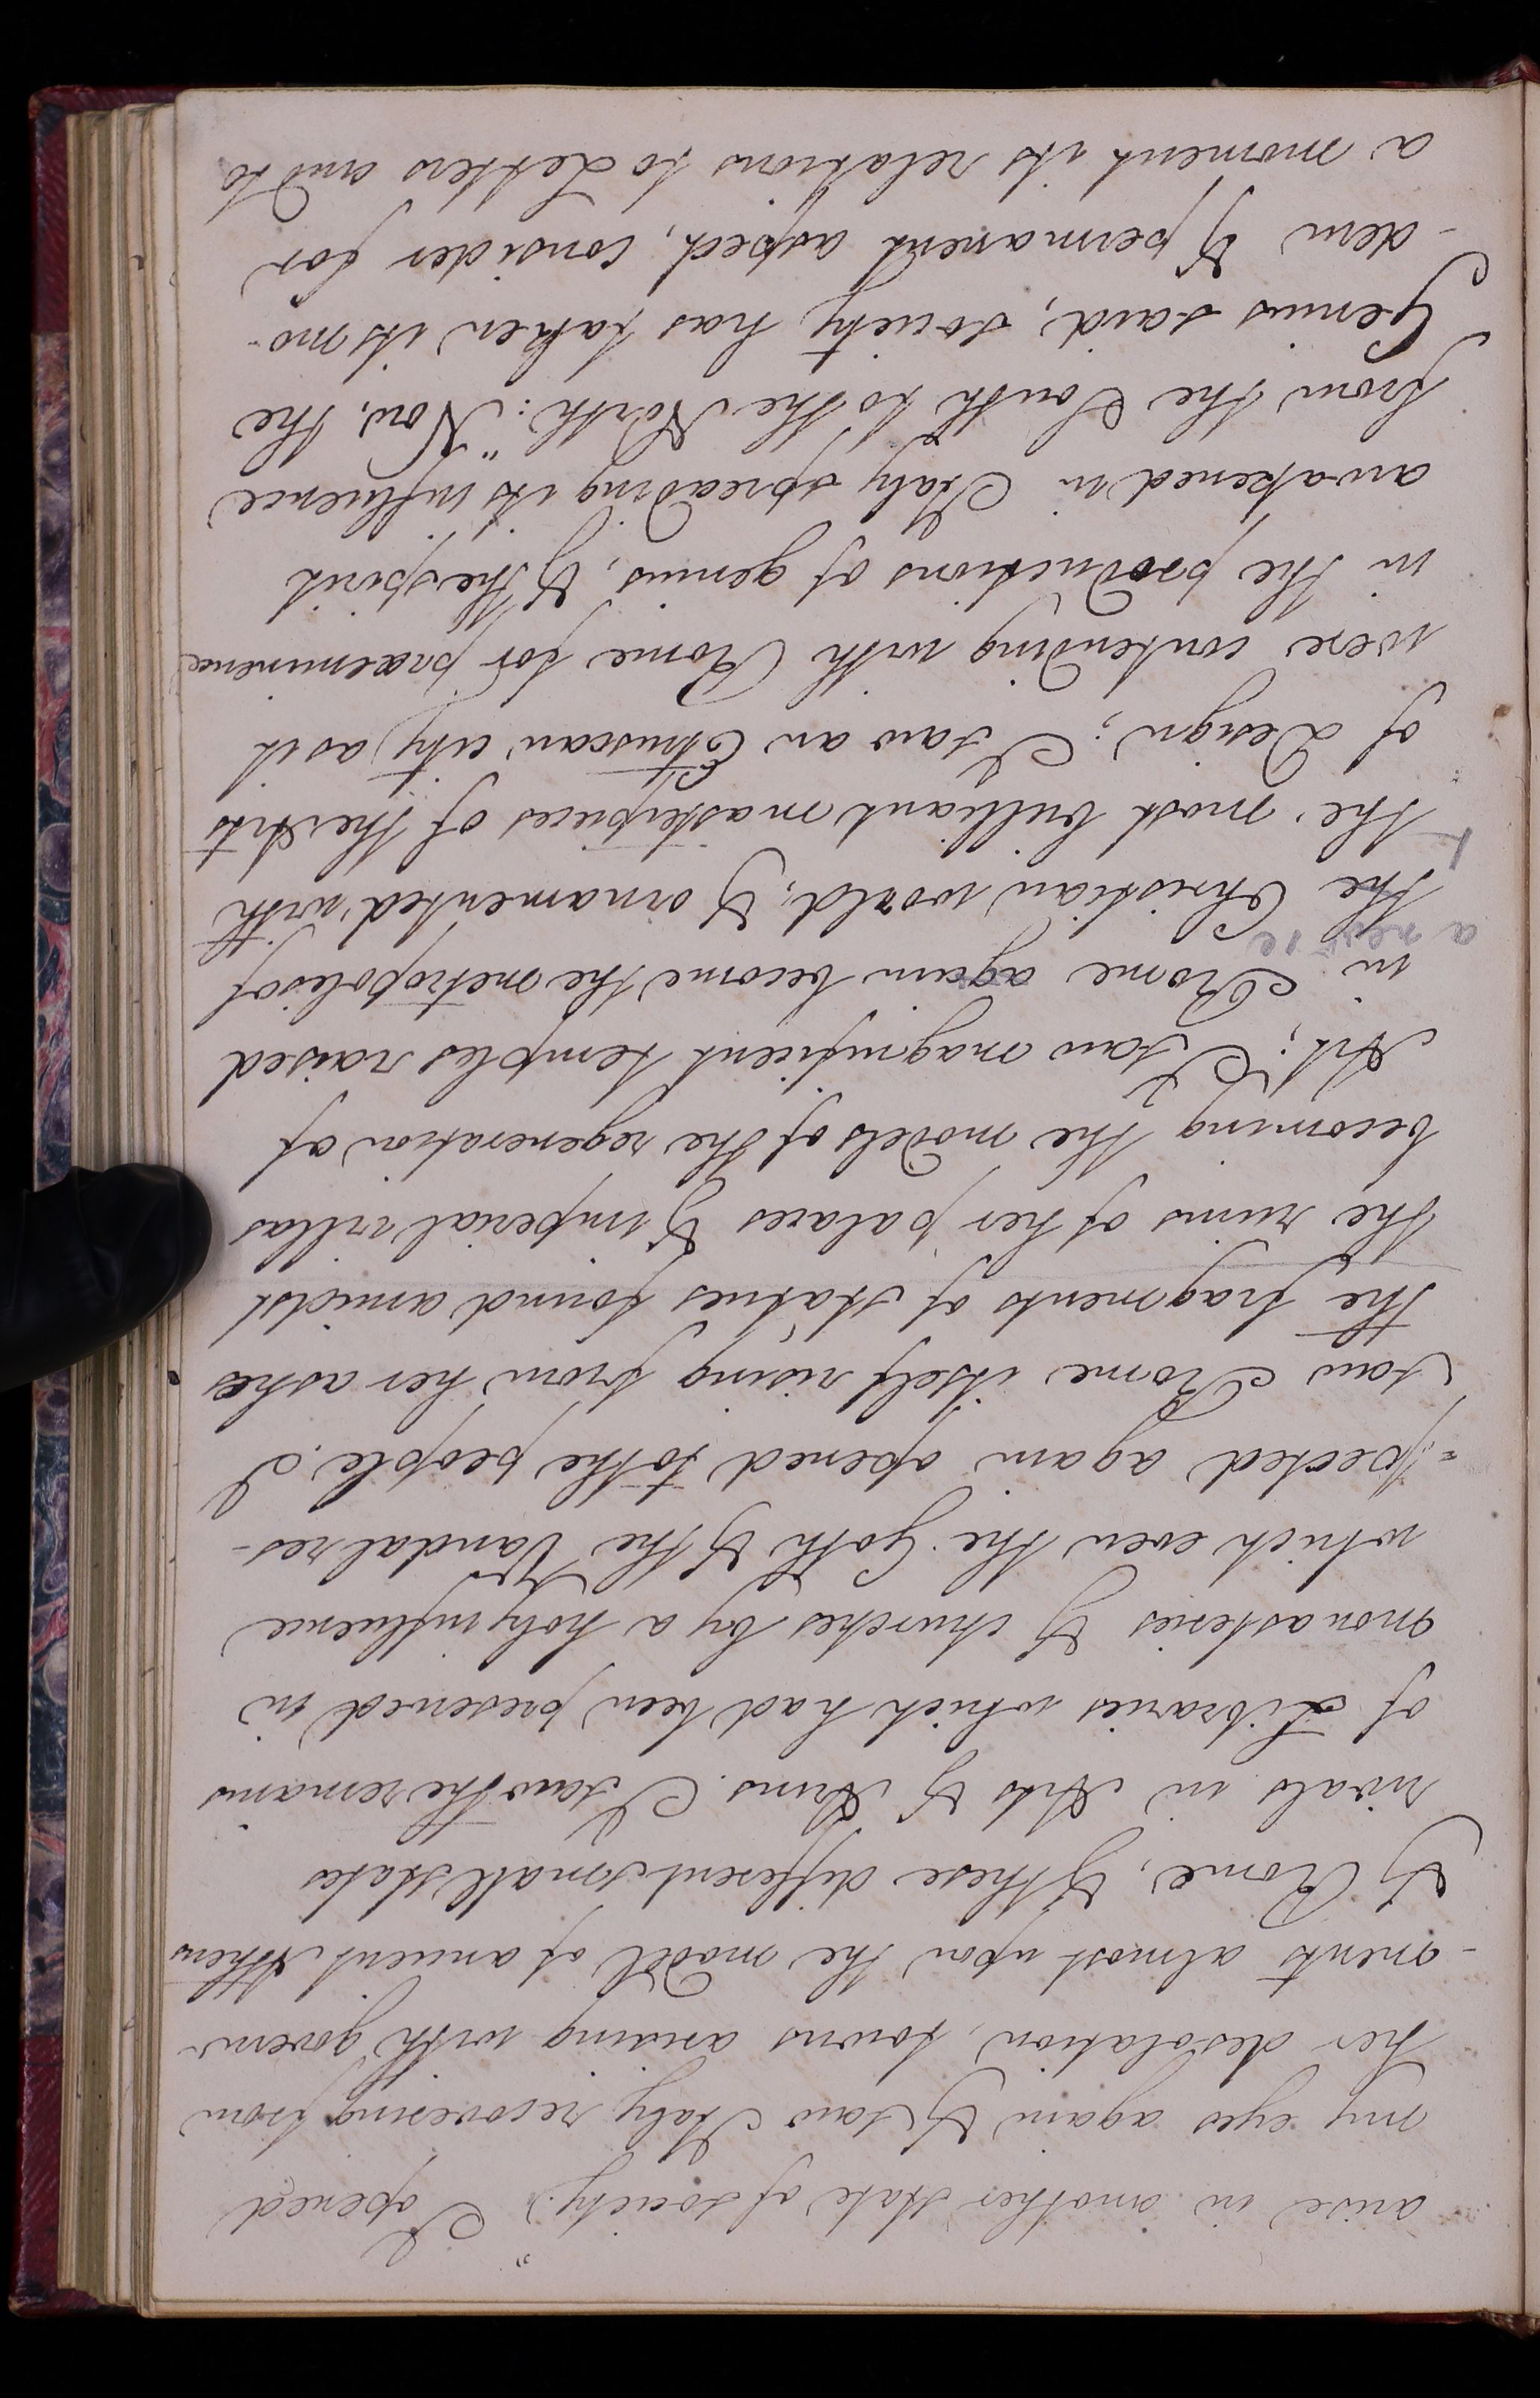 arise in another state of society." I opened
my eyes again & saw Italy recovering from
her desolation, towns arising with govern-
-ments almost upon the model of ancient Athens
& Rome, & these different small states
rivals in Arts & Arms. I saw the remains
of Libraries which had been preserved in
monasteries & churches by a holy influence
which even the Goth & the Vandal res-
=pected again opened to the people. I
saw Rome itself rising from her ashes
the fragments of statues found amidst
the ruins of her palaces & imperial villas
becoming the models of the regeneration of
Art; I saw magnificent temples raised
in Rome again become the metropolis of
the Christian world, & ornamented with
the most brilliant masterpieces of the Arts
of Design; I saw an Etruscan city as it
were contending with Rome for preeminence
in the productions of genius, & the spirit
awakened in Italy spreading its influence
from the South to the North: "Now, the
Genius said, society has taken its mo-
-dern & permanent aspect, consider for
a moment its relations to Letters and to